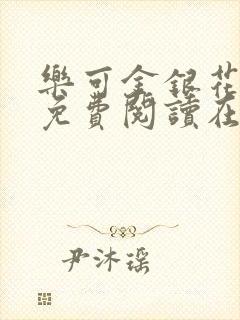 樂可金銀花
免費閱讀在
尹沐瑶